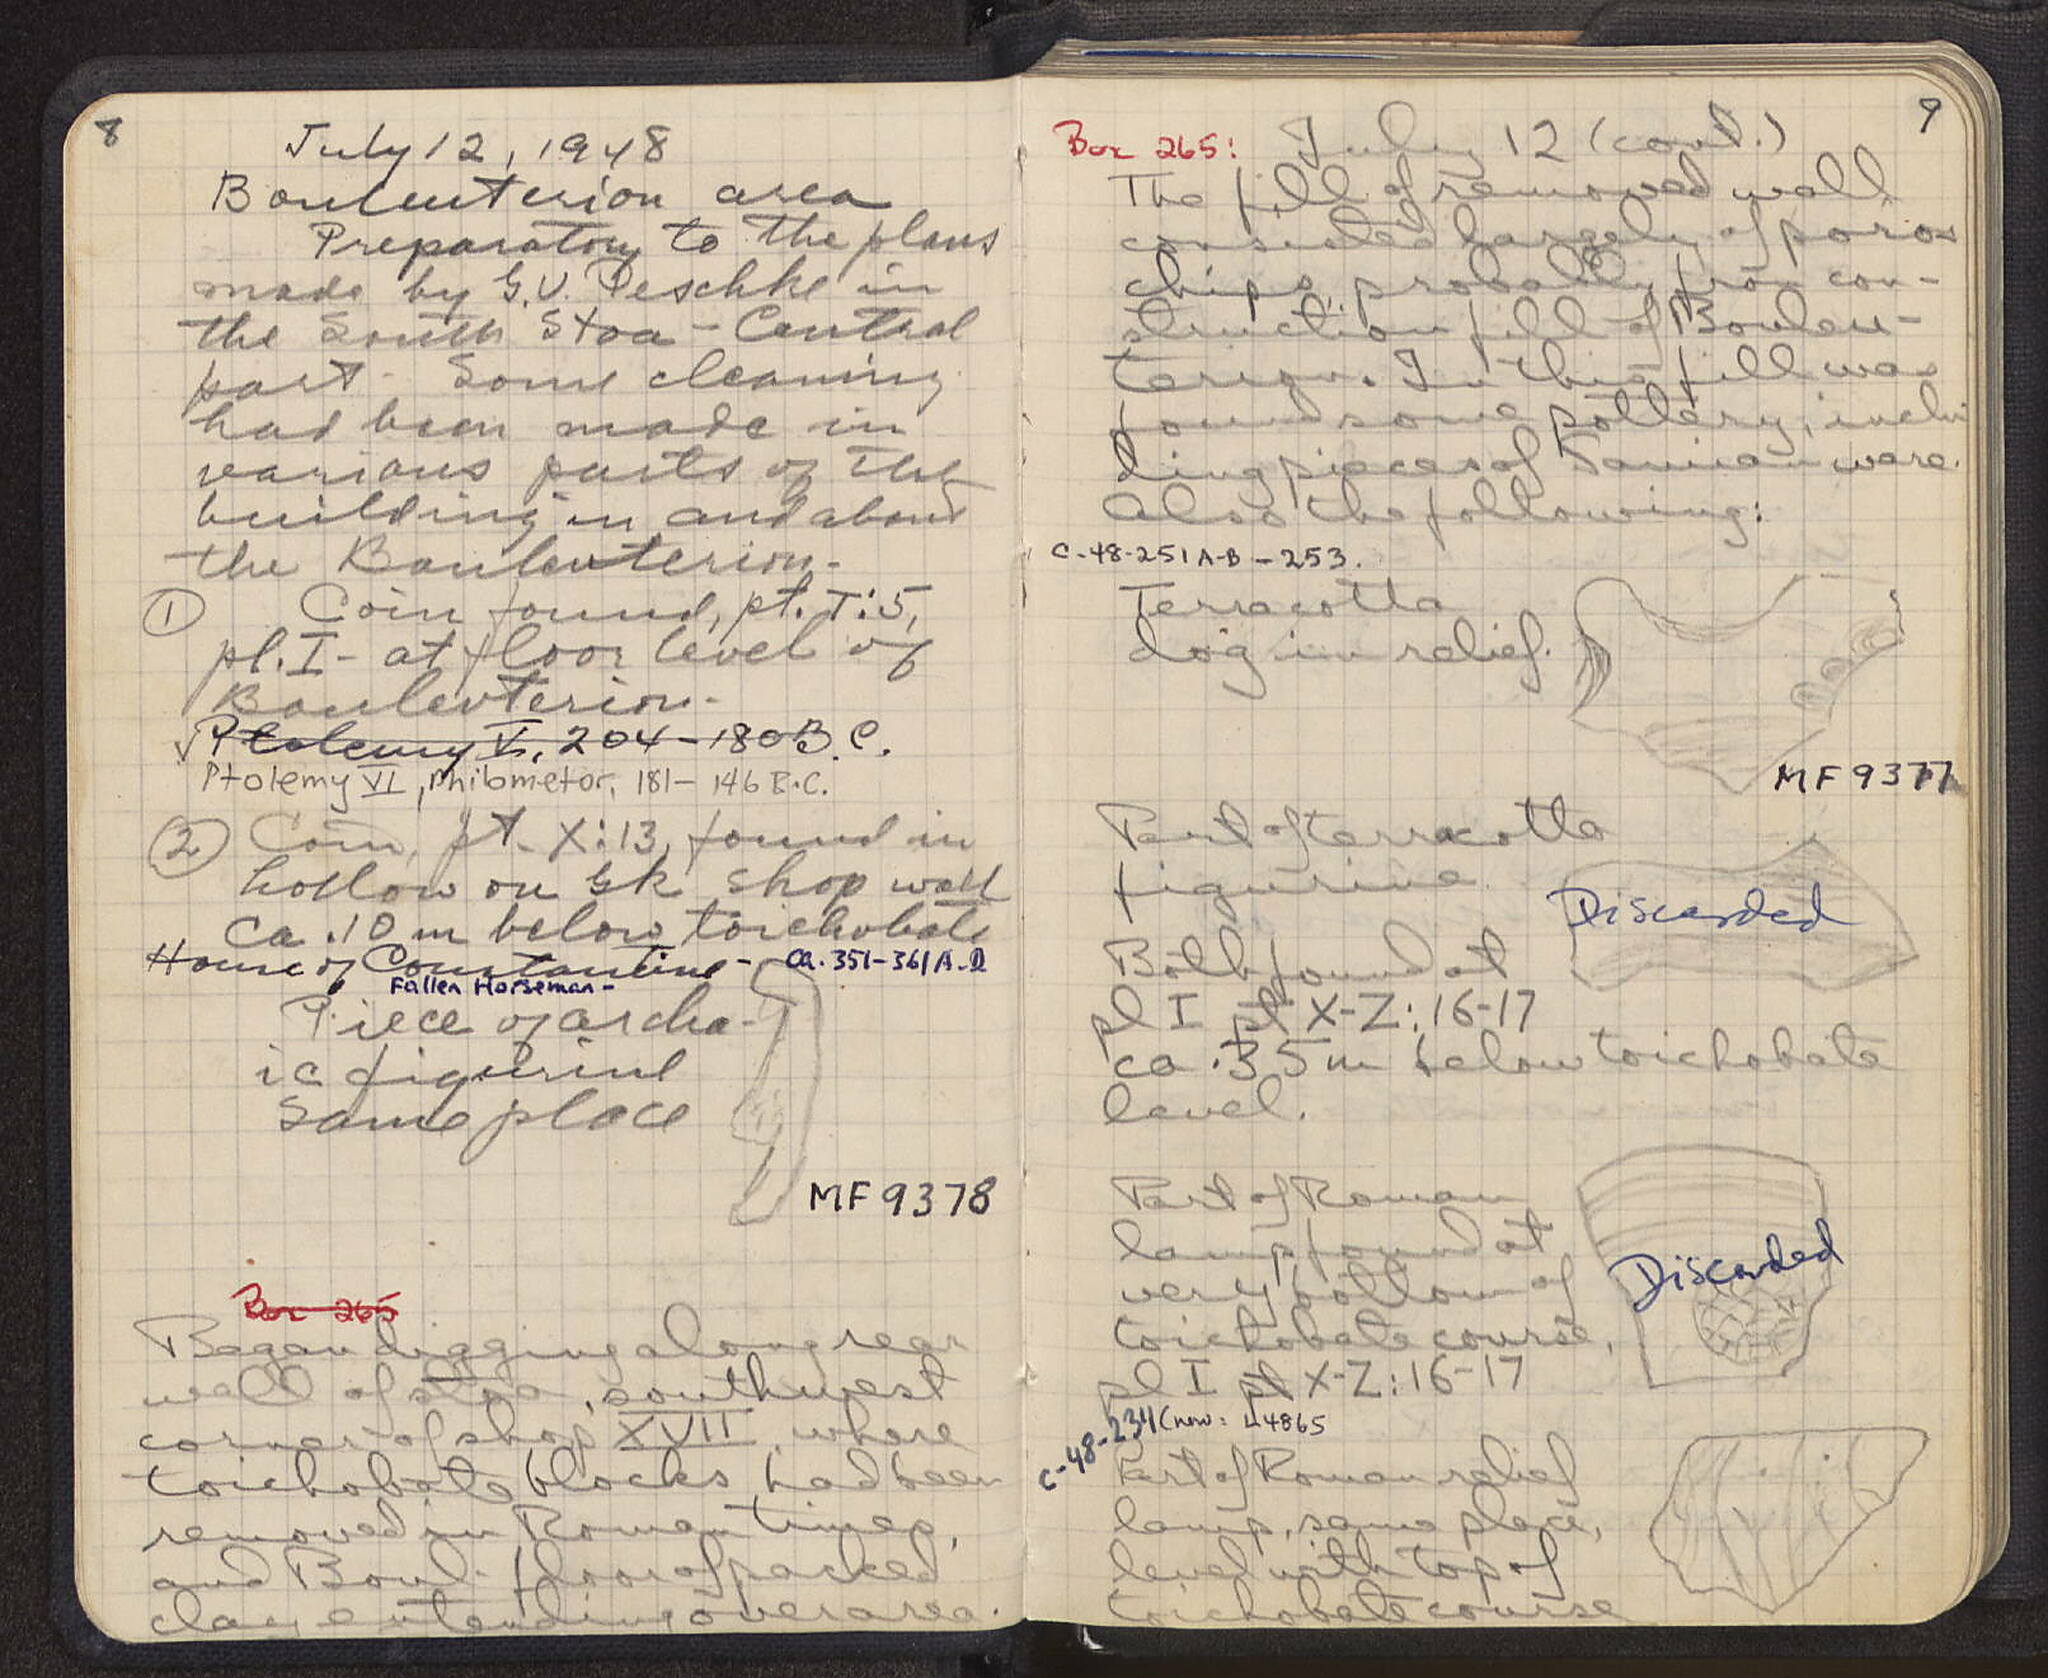 8
July 12, 1948
Bouleuterion area
Preparatory to the plans
made by G.V. Peschke in
the South Stoa - Central
part - Some cleaning
had been made in
various parts of the
building in and about
the Bouleuterion.
① Coin found, pt. T:5,
pl. I - at floor level of
Bouleuterion.
√ Ptolemy V, 204-180 B.C.
Ptolemy VI, Philometor, 181-146 B.C.
② Coin, pt. X:13, found in
hollow on Gk shop wall
Ca .10 m below toichobate
House of Constantine - ca. 351-361 A.D
Fallen Horseman -
Piece of archa-
ic figurine
Same place
MF 9378
Box 265
Began digging along rear
wall of stoa, southwest
corner of shop XVII, where
toichobate blocks had been
removed in Roman times,
and Boul. floor of packed
clay extending over area.
9
Box 265: July 12 (cont.)
The fill of removed wall
consisted largely of poros
chips, probably from con-
struction fill of Bouleu-
terion. In this fill was
found some pottery, inclu
ding pieces of Samian ware.
Also the following:
C-48-251 A-B - 253.
Terracotta
dog in relief.
MF 9377
Part of terracotta
figurine
Discarded
Both found at
pl I pt X-Z:16-17
ca .35 m below toichobate
level.
Part of Roman
lamp found at
very bottom of
toichobate course,
pl I pt X-Z:16-17
Discarded
C-48-234 (now: L4865
Part of Roman relief
lamp, same place,
level with top of
toichobate course